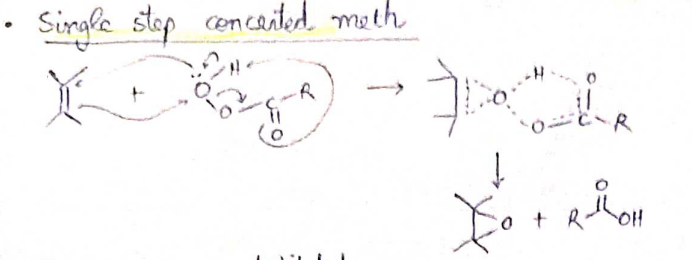 • Single step concerted mech
+ H O O C O R → O H O C O R
↓
O + R O OH